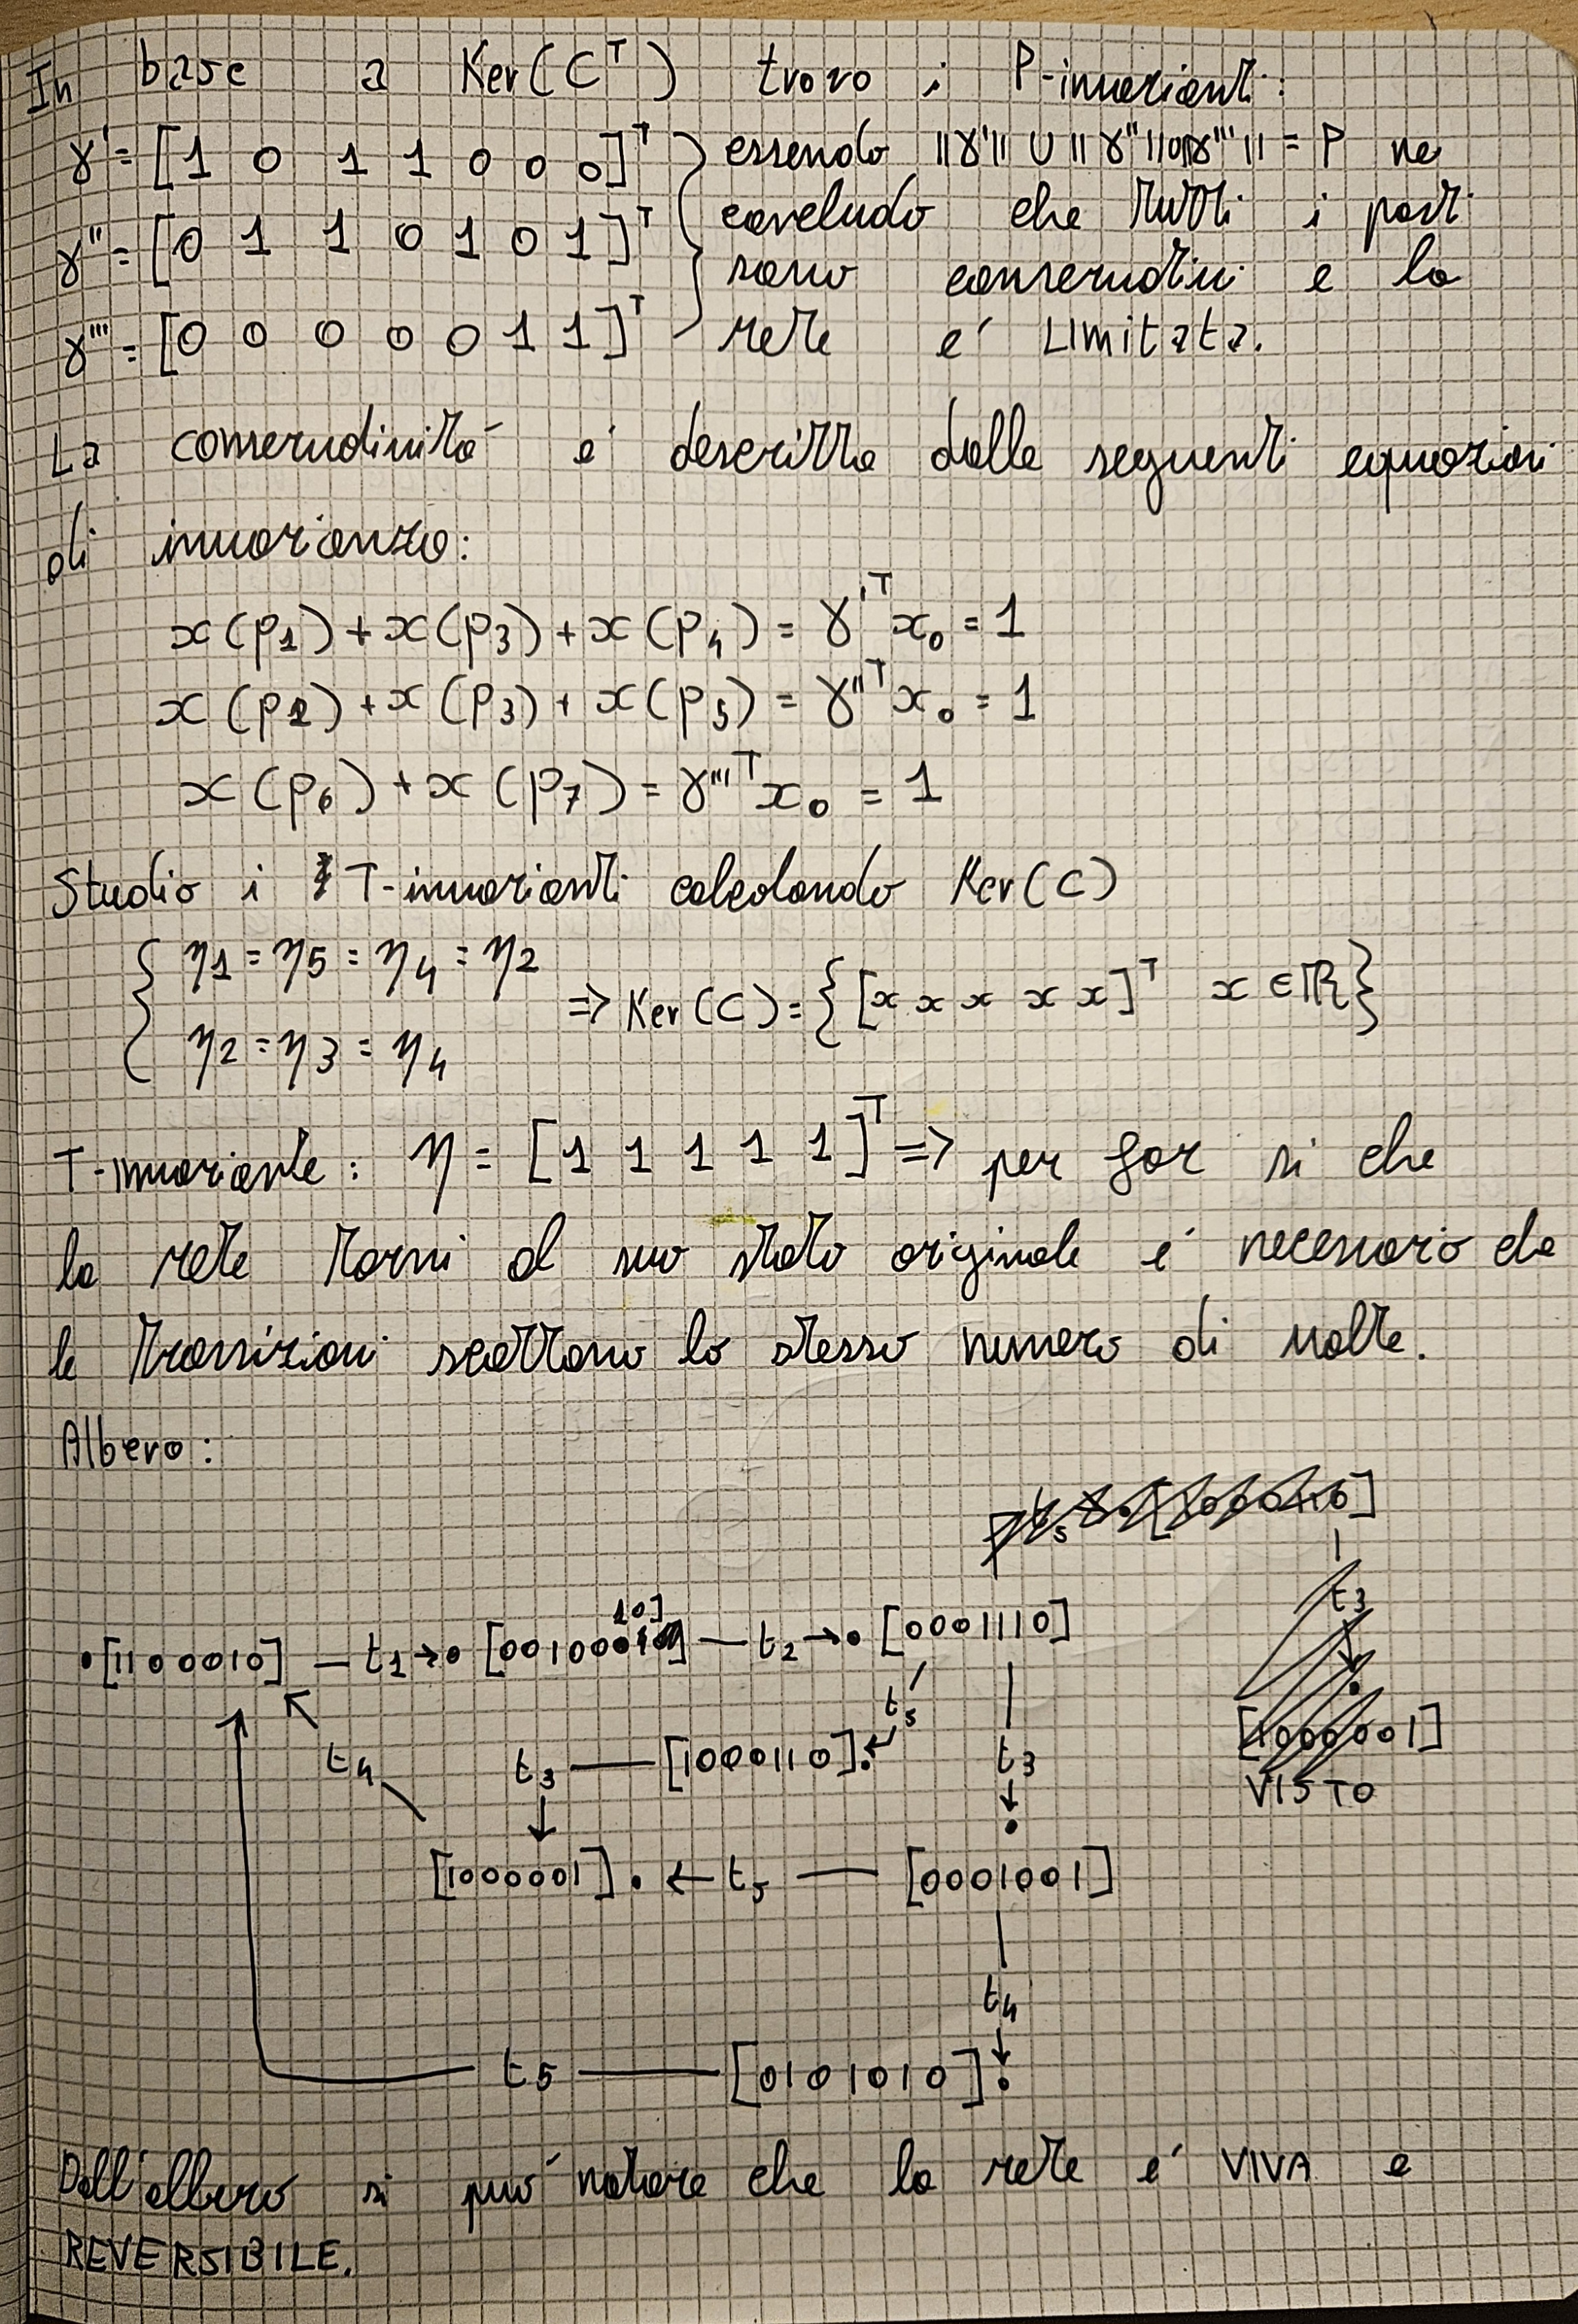 In base a Ker(Cᵀ) trovo i P-invarianti:
γ' = [1 0 1 1 0 0 0]ᵀ essendo ||γ'|| ∪ ||γ''|| ∪ ||γ'''|| = P ne
γ'' = [0 1 1 0 1 0 1]ᵀ concludo che tutti i posti
sono conservativi e la
γ''' = [0 0 0 0 0 1 1]ᵀ rete e' LIMITATA.
La conservativita' e' descritta dalle seguenti equazioni
di invarianza:
x(p1) + x(p3) + x(p4) = γ'ᵀ x0 = 1
x(p2) + x(p3) + x(p5) = γ''ᵀ x0 = 1
x(p6) + x(p7) = γ'''ᵀ x0 = 1
Studio i T-invarianti calcolando Ker(C)
{ η1 = η5 = η4 = η2
=> Ker(C) = {[x x x x x]ᵀ x ∈ ℝ}
η2 = η3 = η4
T-invariante: η = [1 1 1 1 1]ᵀ => per far si che
la rete torni al suo stato originale e' necessario che
le transizioni scattano lo stesso numero di volte.
Albero:
t5 [1000110]
t3
[1000001]
VISTO
[1100010] — t1 → [0010010] — t2 → [0001110]
t5
t4 t3 — [1000110] t3
[1000001] ← t5 — [0001001]
t4
t5 — [0101010]
Dall'albero si puo' notare che la rete e' VIVA e
REVERSIBILE.